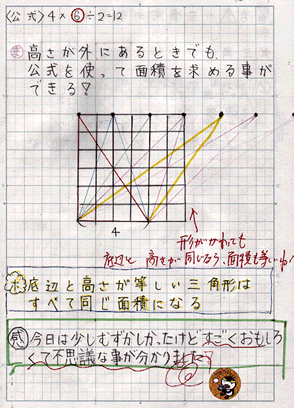 〈公式〉4×⑥÷2=12
ま 高さが外にあるときでも、
公式を使って面積を求める事が
できる▽
4
形がかわっても
底辺と高さが同じなら、面積も等しいね!
ポ 底辺と高さが等しい三角形は
すべて同じ面積になる
感 今日は少しむずかしかったけどすごくおもしろ
くて不思議な事が分かりました。